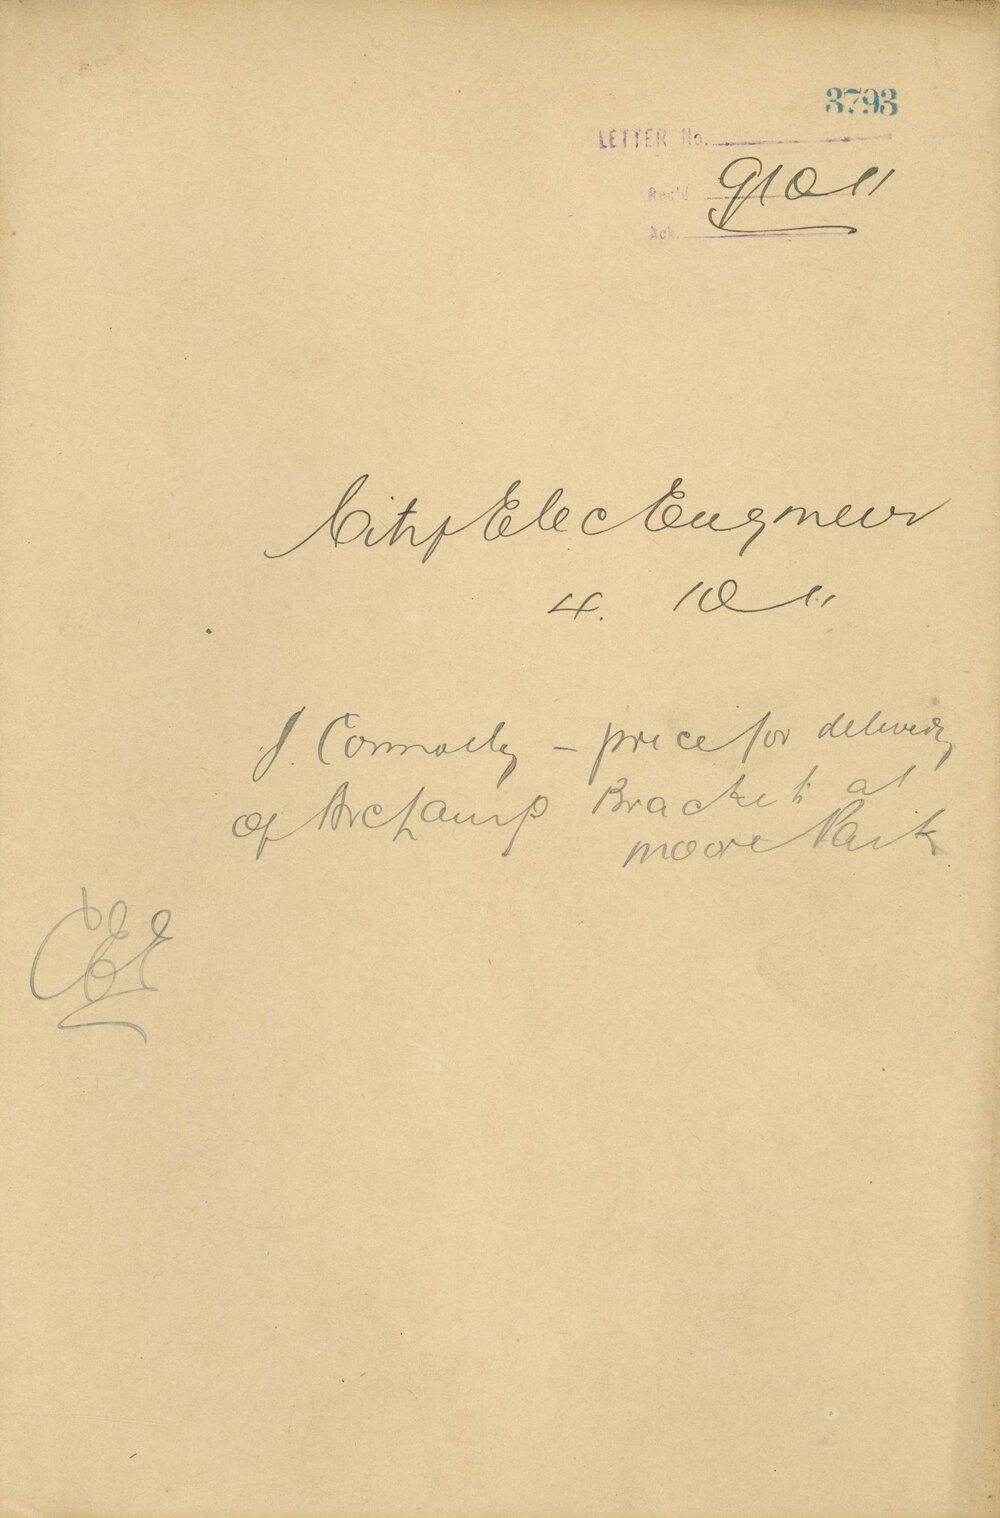 3793
LETTER No.
Rec'd 9 10 11
Ack.
City Elec Engineer
4. 10 11
J. Connolly - price for delivery
of Arc Lamp Brackets at
Moore Park
CEE